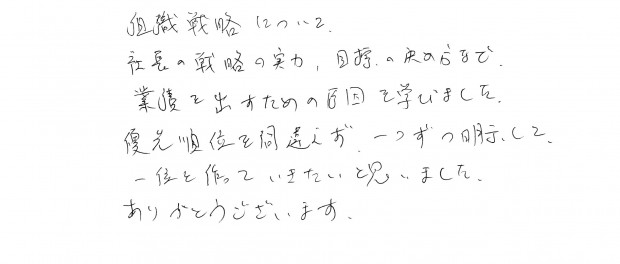 組織戦略について、
社長の戦略の実力、目標の決め方まで、
業績を出すための要因を学びました。
優先順位を間違えず、一つずつ明示して、
一位を作っていきたいと思いました。
ありがとうございます。